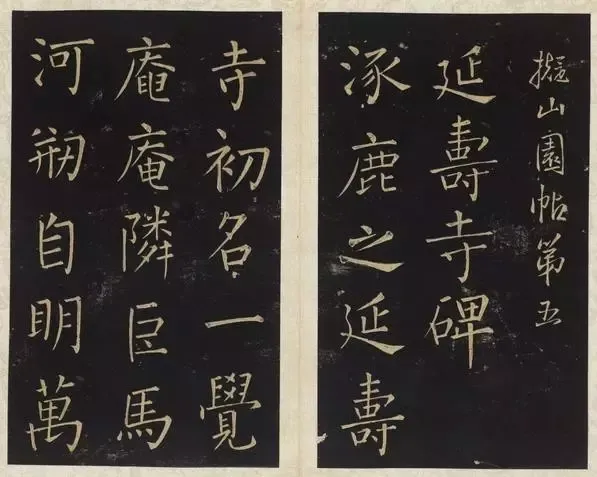 擬山園帖第五
延壽寺碑
涿鹿之延壽
寺初名一覺
庵庵隣臣馬
河剏自明萬